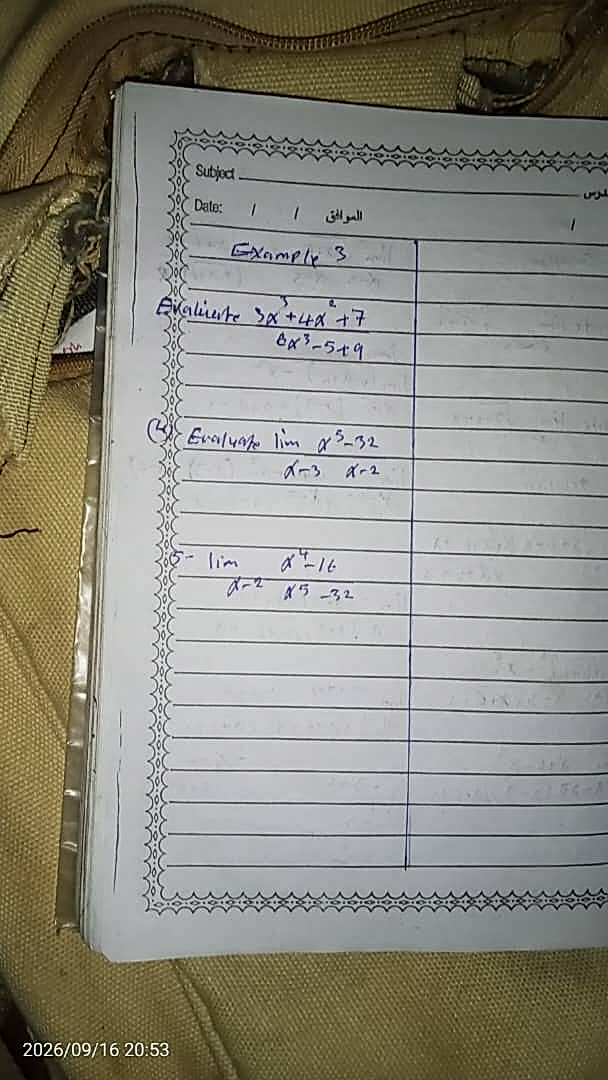 Subject
Date: / / الموافق /
Example 3
Evaluate 3x³+4x²+7
6x³-5+9
(4) Evaluate lim x⁵-32
x-3 x-2
5- lim x⁴-16
x-2 x⁵-32
2026/09/16 20:53